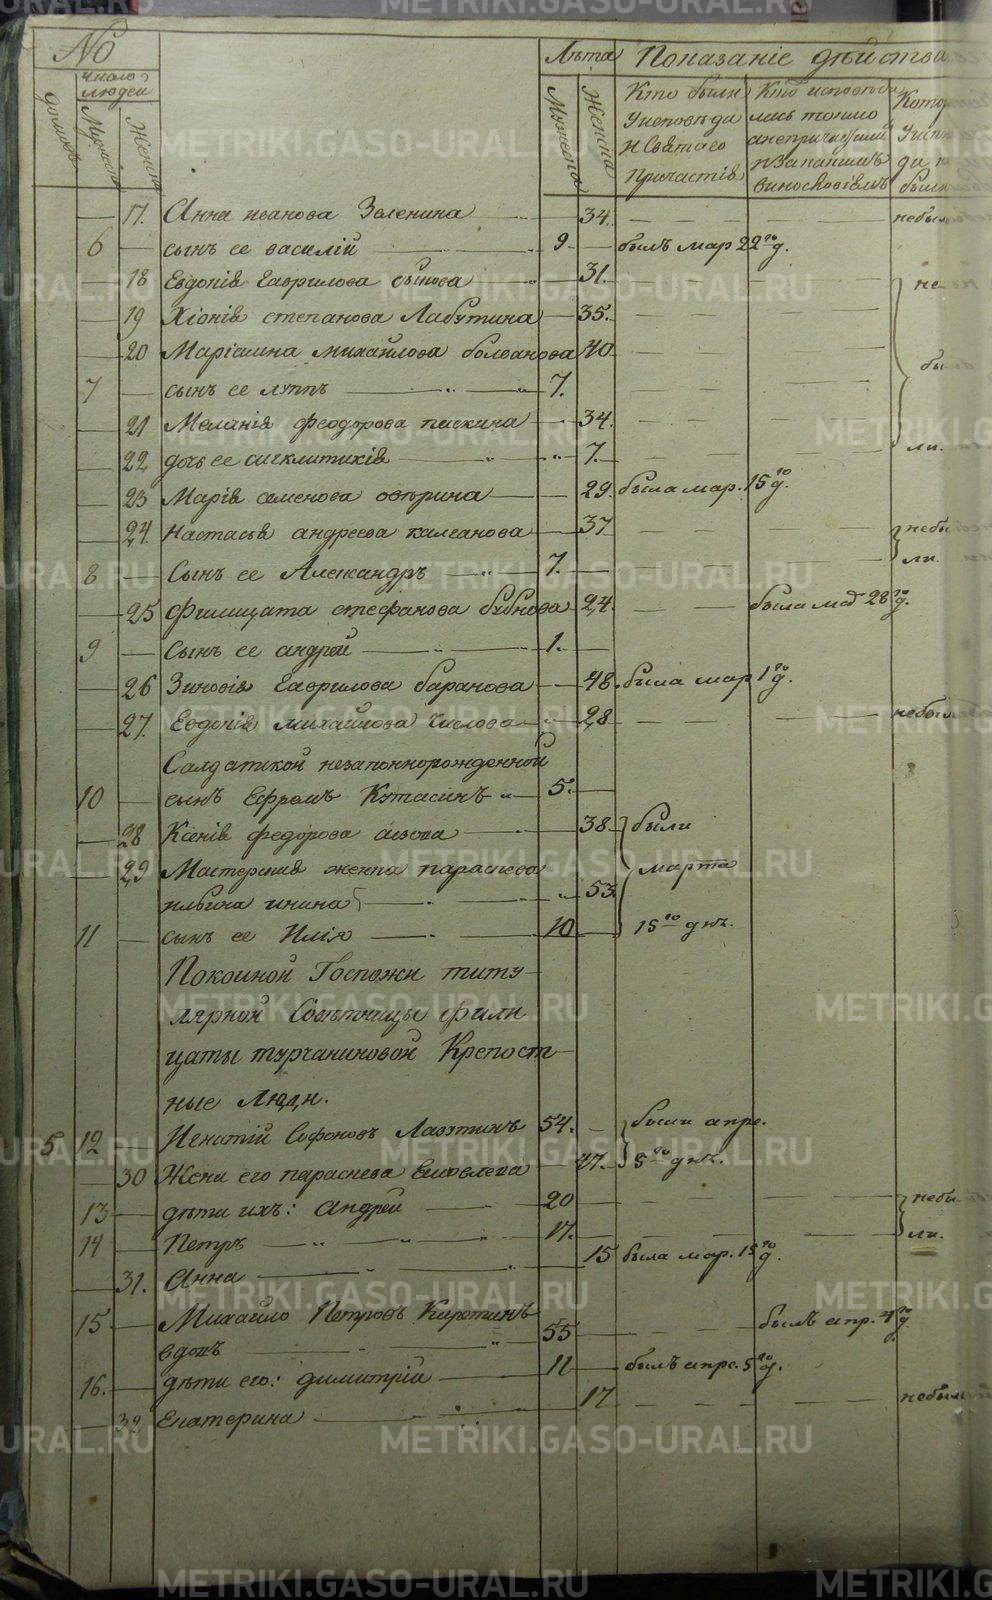 №
Лѣта Показаніе дѣйства
число людей
домовъ
Мужеска
Женска
Мужеска
Женска
Кто были У исповѣди и Святаго причастія
Кто исповѣдались токмо а непричастили
были
17. Анна иванова Зеленина 34. небы
6 сынъ ее василій 9 былъ мар 22го д.
18 Евдокія Гаврилова 31. не
19 Хіонія степанова Лабутина 35.
20 Маріамна михайлова болванова 40 бы
7 сынъ ее луппъ 7.
21 Меланія феодорова пискина 34. ли.
22 дочь ее сигклитикія 7.
23 Марія семенова 29. была мар. 15го д.
24. Настасья андреева калганова 37 небы
8 Сынъ ее Александръ 7. ли.
25 Филицата стефанова бубнова 24. была 28го д.
9 Сынъ ее андрей 1.
26 Зиновія Гаврилова баранова 48. была мар 1го д.
27. Евдокія михайлова числова 28 небы
Салдатской незаконнорожденной
10 сынъ Ефремъ Кутасинъ 5.
28 Ксенія федорова 38. были
29 Мастерская женка параскева марта
ильина инина 53.
11 сынъ ее Илія 10 15го дня.
Покойной Госпожи титу
лярной Совѣтницы фили
цаты турчаниновой Крепост
ные люди.
5 12 Игнатій Софоновъ Лабутинъ 54. были апре.
30 Жена его параскева 47. 5го дня.
13 дѣти ихъ: Андрей 20 небы
14 Петръ 17. ли.
31. Анна 15 была мар. 15го д.
15 Михайло Петровъ Каротинъ
вдовъ 55 былъ апр. 4го д.
16. дѣти его: димитрій 11 былъ апре. 5го д.
32 Екатерина 17 небы
METRIKI.GASO-URAL.RU